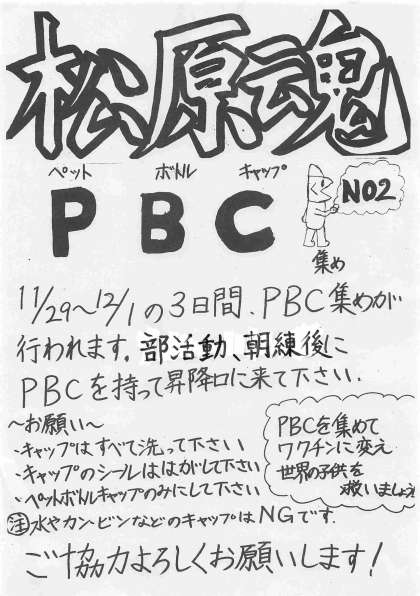 松原魂
ペット ボトル キャップ
P B C
NO2
集め
11/29～12/1の3日間、PBC集めが
行われます。部活動、朝練後に
PBCを持って昇降口に来て下さい。
～お願い～
・キャップはすべて洗って下さい
・キャップのシールははがして下さい
・ペットボトルキャップのみにして下さい
注 水やカン・ビンなどのキャップはNGです。
PBCを集めて
ワクチンに変え
世界の子供を
救いましょう
ご協力よろしくお願いします！